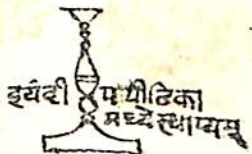 इयंदी पपीठिका
मध्येस्थाप्यम्